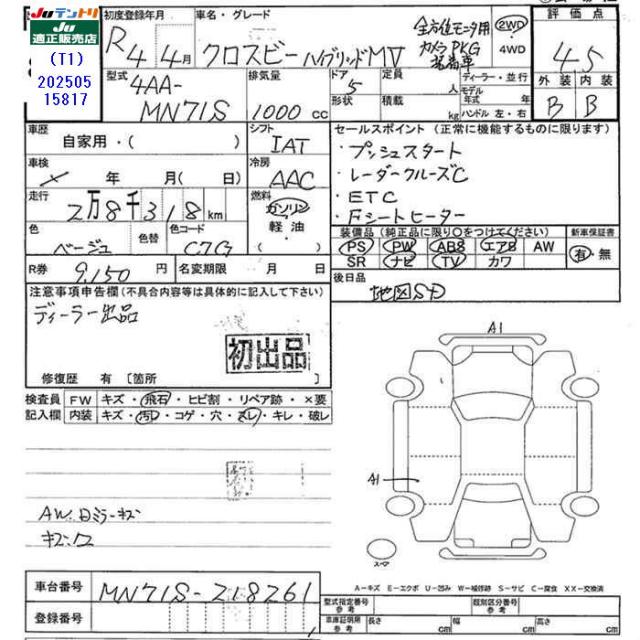 Juテントリ
Ju
適正販売店
(T1)
202505
15817
初度登録年月
車名・グレード
評価点
R4 4月
クロスビー ハイブリッドMV
全方位モニタ用
カメラPKG
装着車
2WD
4WD
4.5
外装 内装
B B
型式
4AA-
MN71S
排気量
1000 cc
ドア
5
形状
定員
人
積載
kg
ディーラー・並行
モデル
年式 年
ハンドル 左・右
車歴
自家用・( )
シフト
IAT
車検
× 年 月( 日)
冷房
AAC
走行
2万8千318km
燃料
ガソリン
軽油
( )
色
ベージュ
色替
色コード
C7G
R券
9,150円
名変期限 月 日
セールスポイント(正常に機能するものに限ります)
・プッシュスタート
・レーダークルーズC
・ETC
・Fシートヒーター
装備品(純正品に限り○をつけてください)
新車保証書
PS PW ABS エアB AW
SR ナビ TV カワ
有・無
後日品
地図SD
注意事項申告欄(不具合内容等は具体的に記入して下さい)
ディーラー出品
初出品
修復歴 有 〔箇所
検査員
記入欄
FW キズ・飛石・ヒビ割・リペア跡・×要
内装 キズ・汚レ・コゲ・穴・スレ・キレ・破レ
A1
A1
AW.Dミラーキズ
スペア
A-キズ E-エクボ U-凹み W-補修跡 S-サビ C-腐食 XX-交換済
車台番号
MN71S-218261
登録番号
型式指定番号
参考
類別区分番号
参考
車庫証明用
参考
長さ
cm
幅
cm
高さ
cm